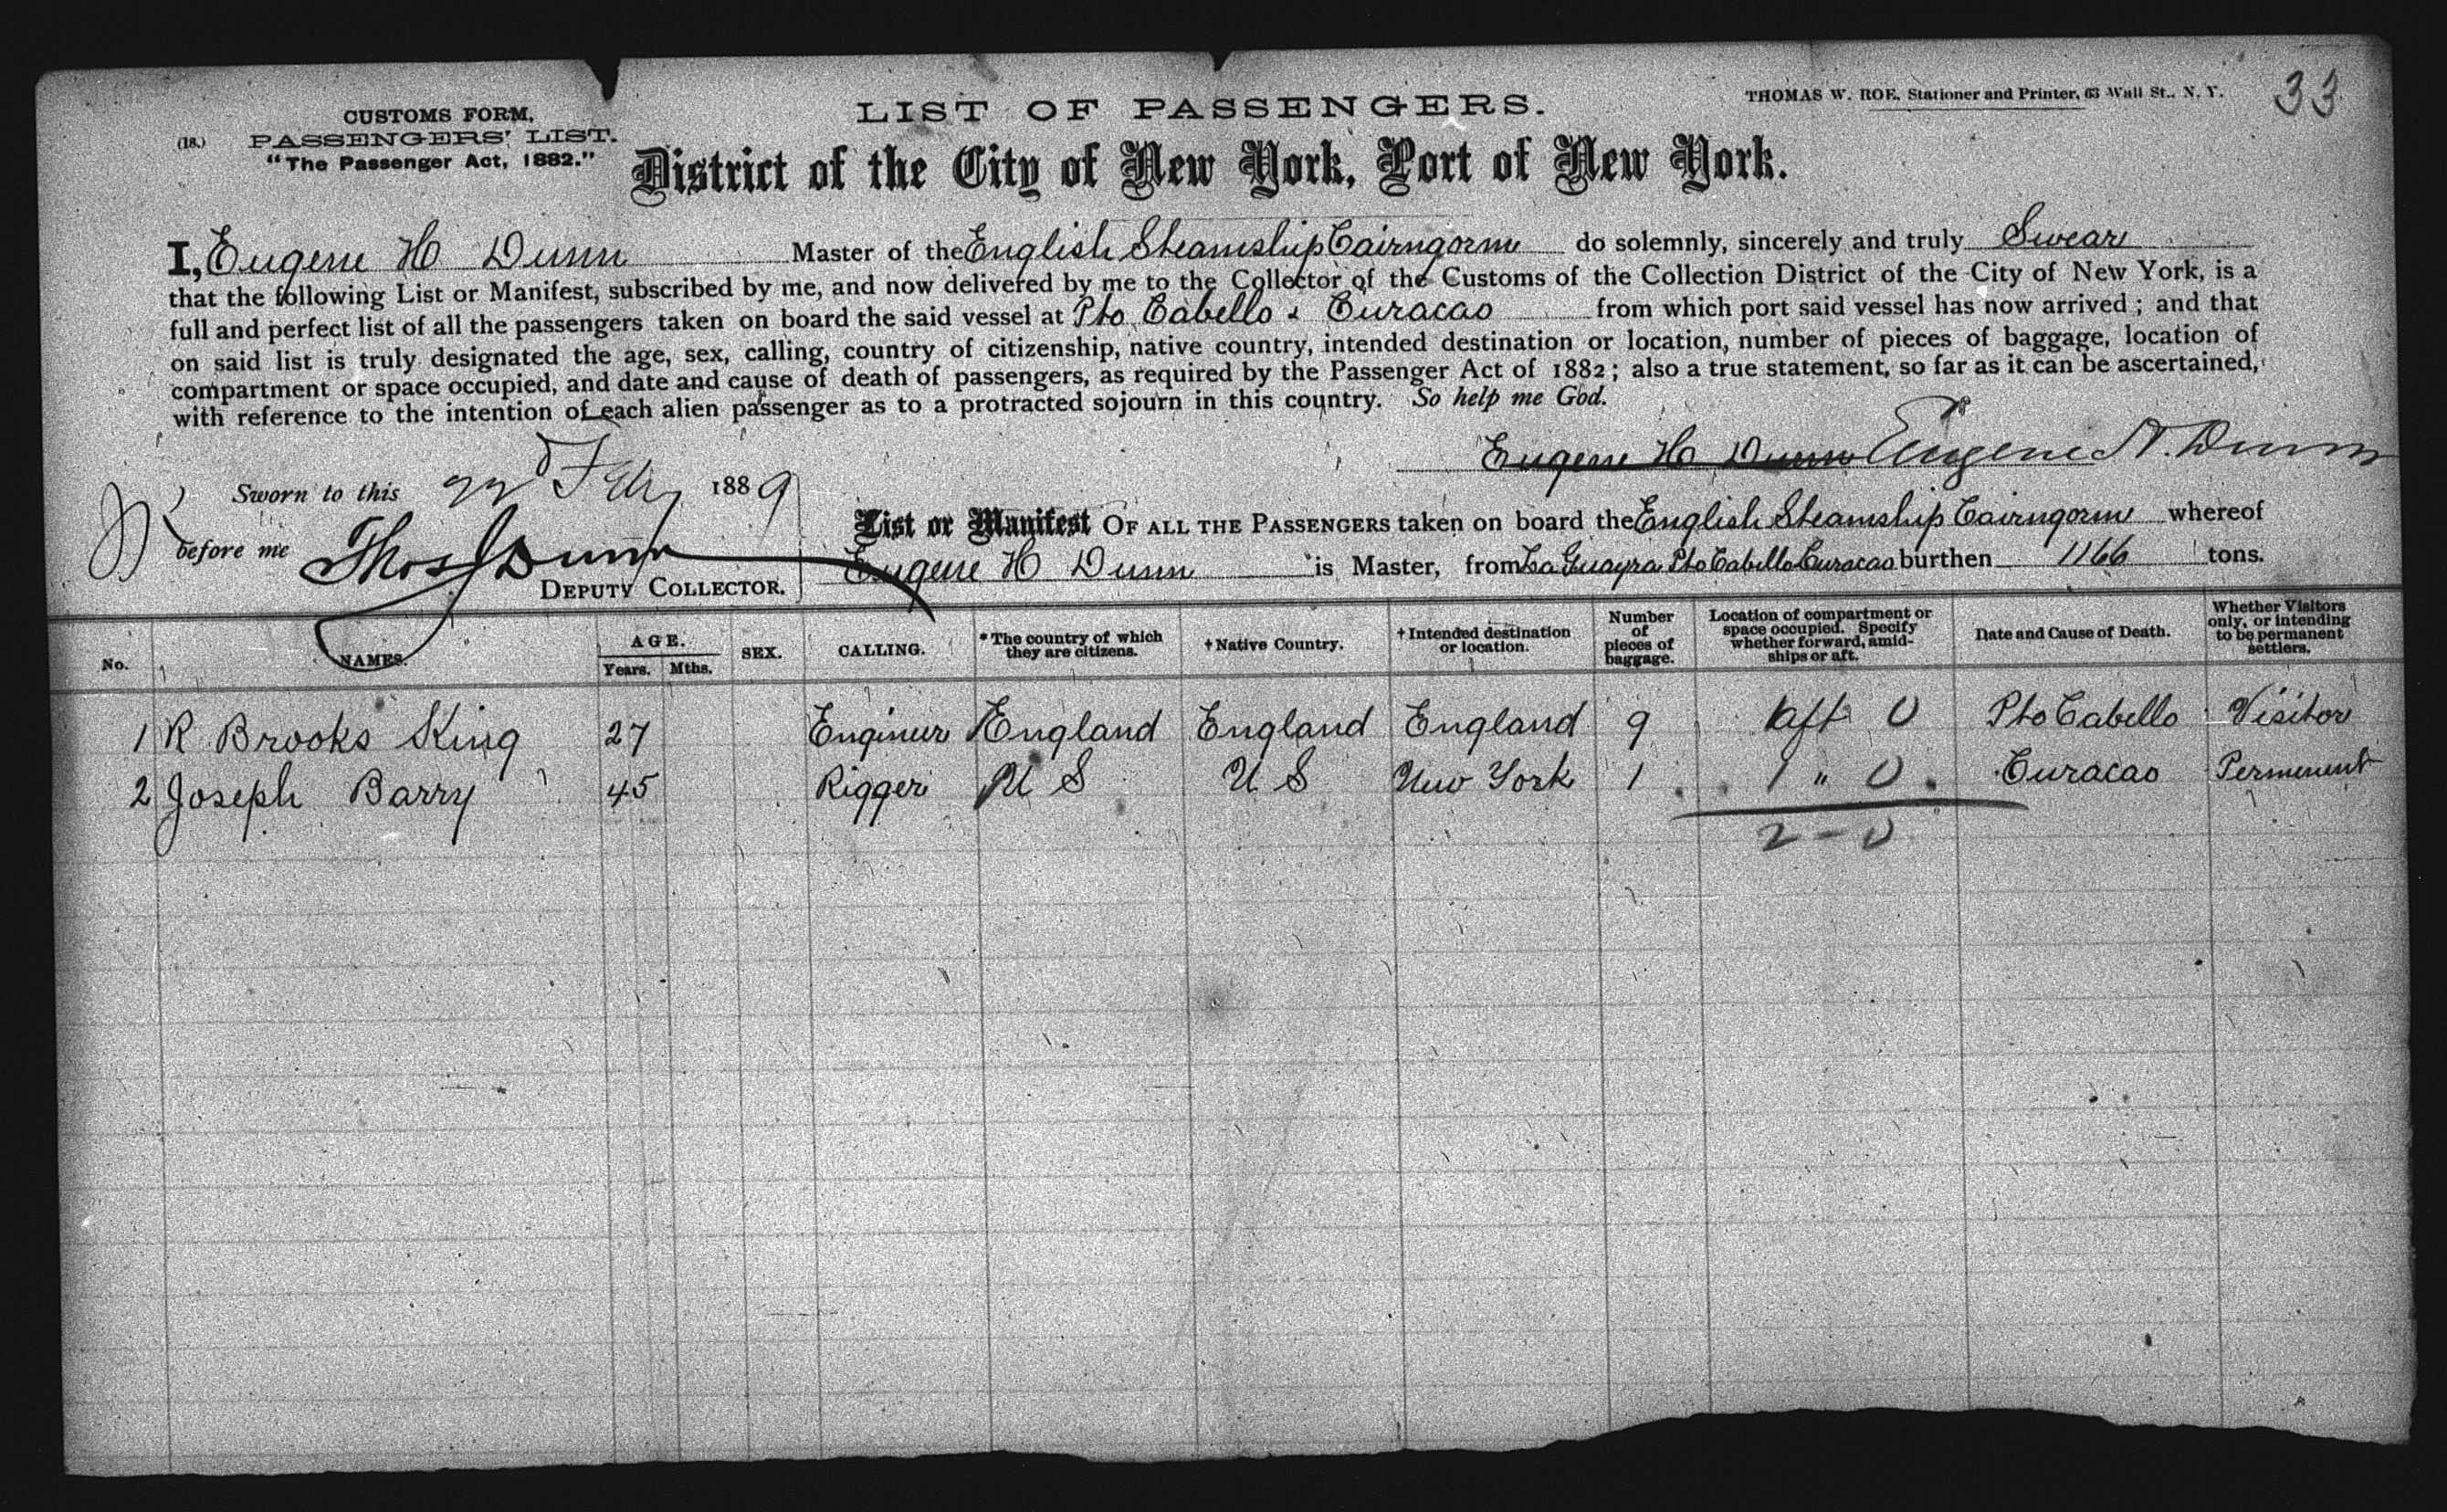 33
THOMAS W. ROE, Stationer and Printer, 63 Wall St., N. Y.
CUSTOMS FORM,
(18.) PASSENGERS' LIST.
"The Passenger Act, 1882."
LIST OF PASSENGERS.
District of the City of New York, Port of New York.
I, Eugene H Dunn Master of the English Steamship Cairngorm do solemnly, sincerely and truly Swear
that the following List or Manifest, subscribed by me, and now delivered by me to the Collector of the Customs of the Collection District of the City of New York, is a
full and perfect list of all the passengers taken on board the said vessel at Pto Cabello & Curacao from which port said vessel has now arrived; and that
on said list is truly designated the age, sex, calling, country of citizenship, native country, intended destination or location, number of pieces of baggage, location of
compartment or space occupied, and date and cause of death of passengers, as required by the Passenger Act of 1882; also a true statement, so far as it can be ascertained,
with reference to the intention of each alien passenger as to a protracted sojourn in this country. So help me God.
Eugene H Dunn Eugene H. Dunn
Sworn to this 22d Feby 1889
before me Thos J Dunn
DEPUTY COLLECTOR.
List or Manifest OF ALL THE PASSENGERS taken on board the English Steamship Cairngorm whereof
Eugene H Dunn is Master, from La Guayra Pto Cabello Curacao burthen 1166 tons.
No. NAMES. AGE. Years. Mths. SEX. CALLING. *The country of which they are citizens. †Native Country. †Intended destination or location. Number of pieces of baggage. Location of compartment or space occupied. Specify whether forward, amidships or aft. Date and Cause of Death. Whether Visitors only, or intending to be permanent settlers.
1 R Brooks King 27 Engineer England England England 9 1 aft 0 Pto Cabello Visitor
2 Joseph Barry 45 Rigger U S U S New York 1 1 " 0 Curacao Permenent
2 - 0